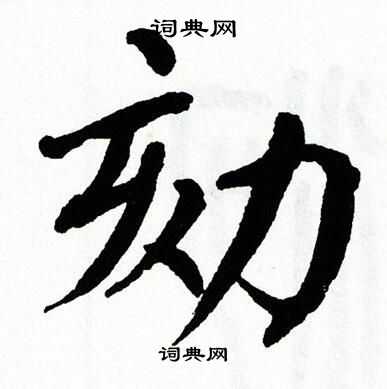 词典网
劾
词典网